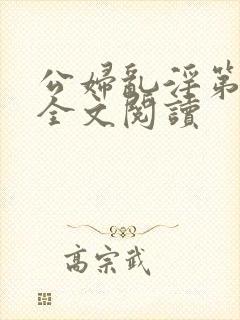 公婦亂淫第
全文閱讀
高宗武